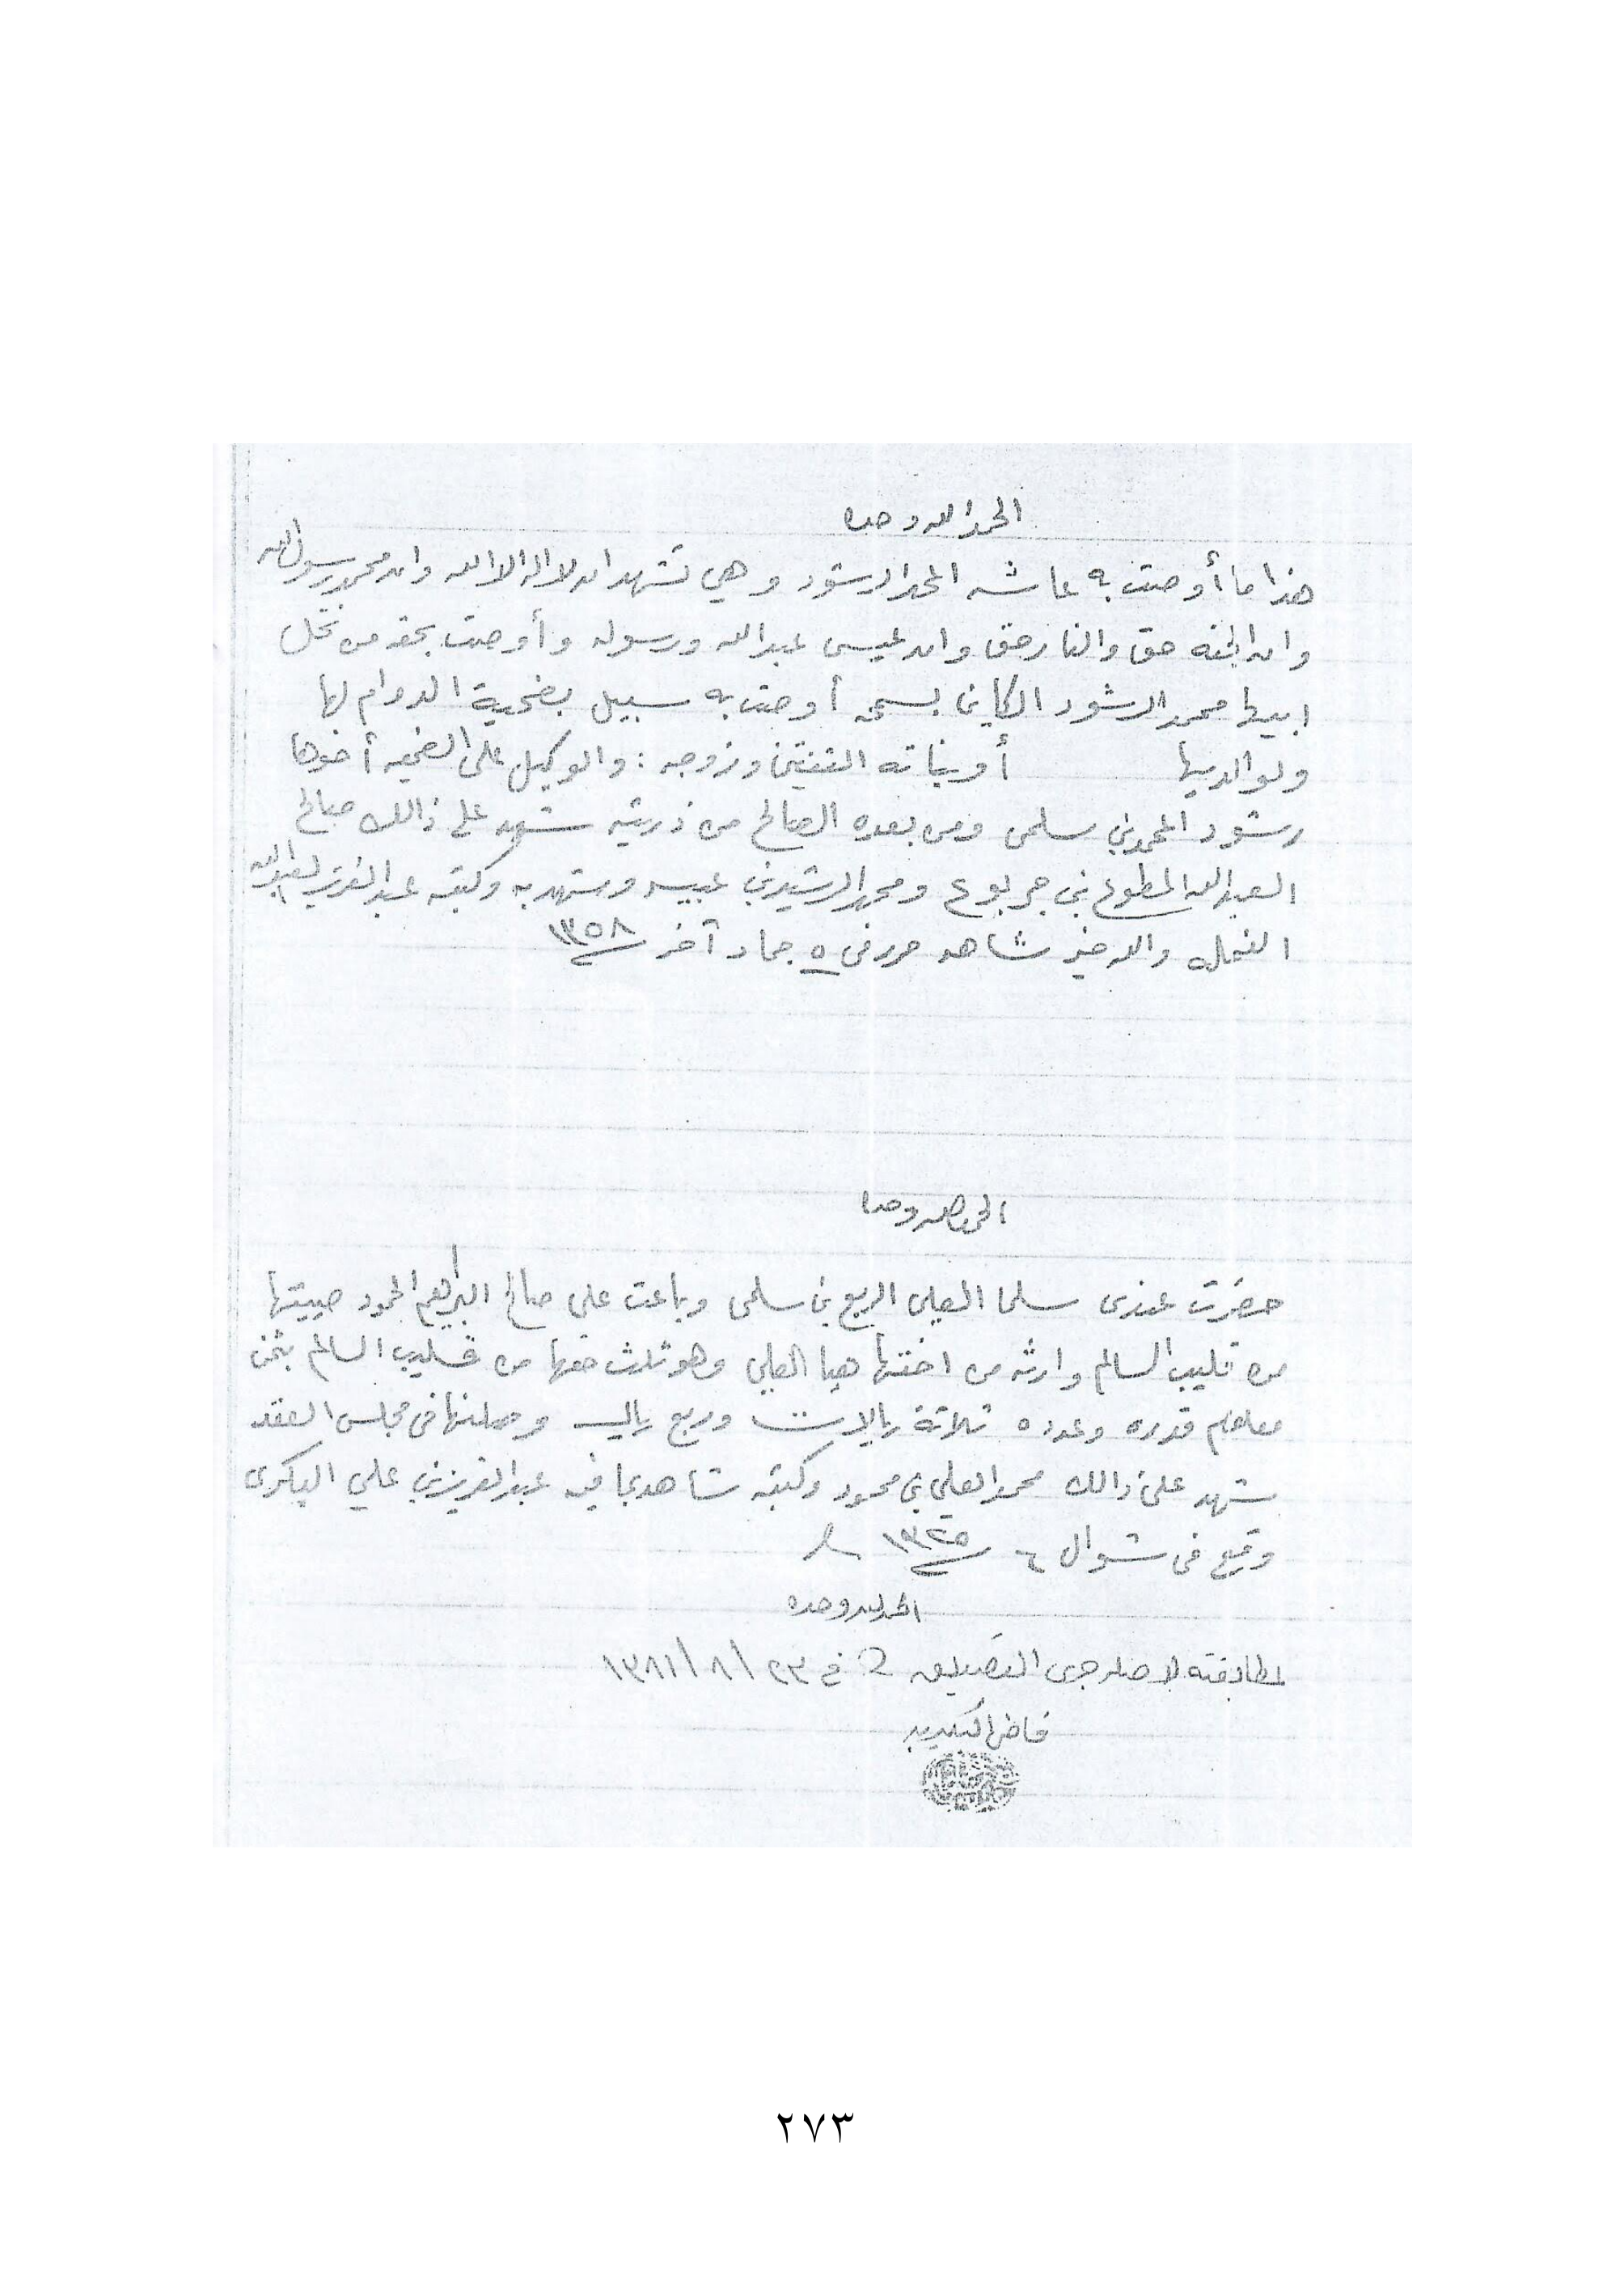 الحمد لله وحده
هذا ما أوصت به عاشه المحمد الرشود وهي تشهد ان لا اله الا الله وان محمد رسول الله
وان الجنه حق والنار حق وان عيسى عبدالله ورسوله وأوصت بحقه من نخل
ابيها محمد الرشود الكاين أوصت به سبيل بضحية الدوام لها
ولوالديها أو بناته الثنتين وزوجه : والوكيل على الضحيه أخوها
رشود المحمد بن سلمى ومن بعده الصالح من ذريته شهد على ذالك صالح
العبدالله المطوع بن جربوع ومحمد الرشيد بن وشهد به وكتبه عبدالعزيز العبدالله
والله خير شاهد حرر في ٥ جماد آخر ١٣٥٨
الحمد لله وحده
حضرت عندى سلما العلي الربع بن سلمى وباعت على صالح البراهيم الحمود صيبتها
من قليب السالم وارثه من اختها هيا العلي وهو ثلث حقها من قليب السالم بثمن
معلوم قدره وعدده ثلاثة ريالات وربع ريال وصلنها في مجلس العقد
شهد على ذالك محمد العلي بن محمود وكتبه شاهد بما فيه عبدالعزيز بن علي البكرى
وقع في شوال ٦ ١٣٢٥
الحمد لله وحده
لمطابقته لاصله جرى التصديق في ٢٣ / ٨ / ١٣٨١
قاضي البكيريه
٢٧٣